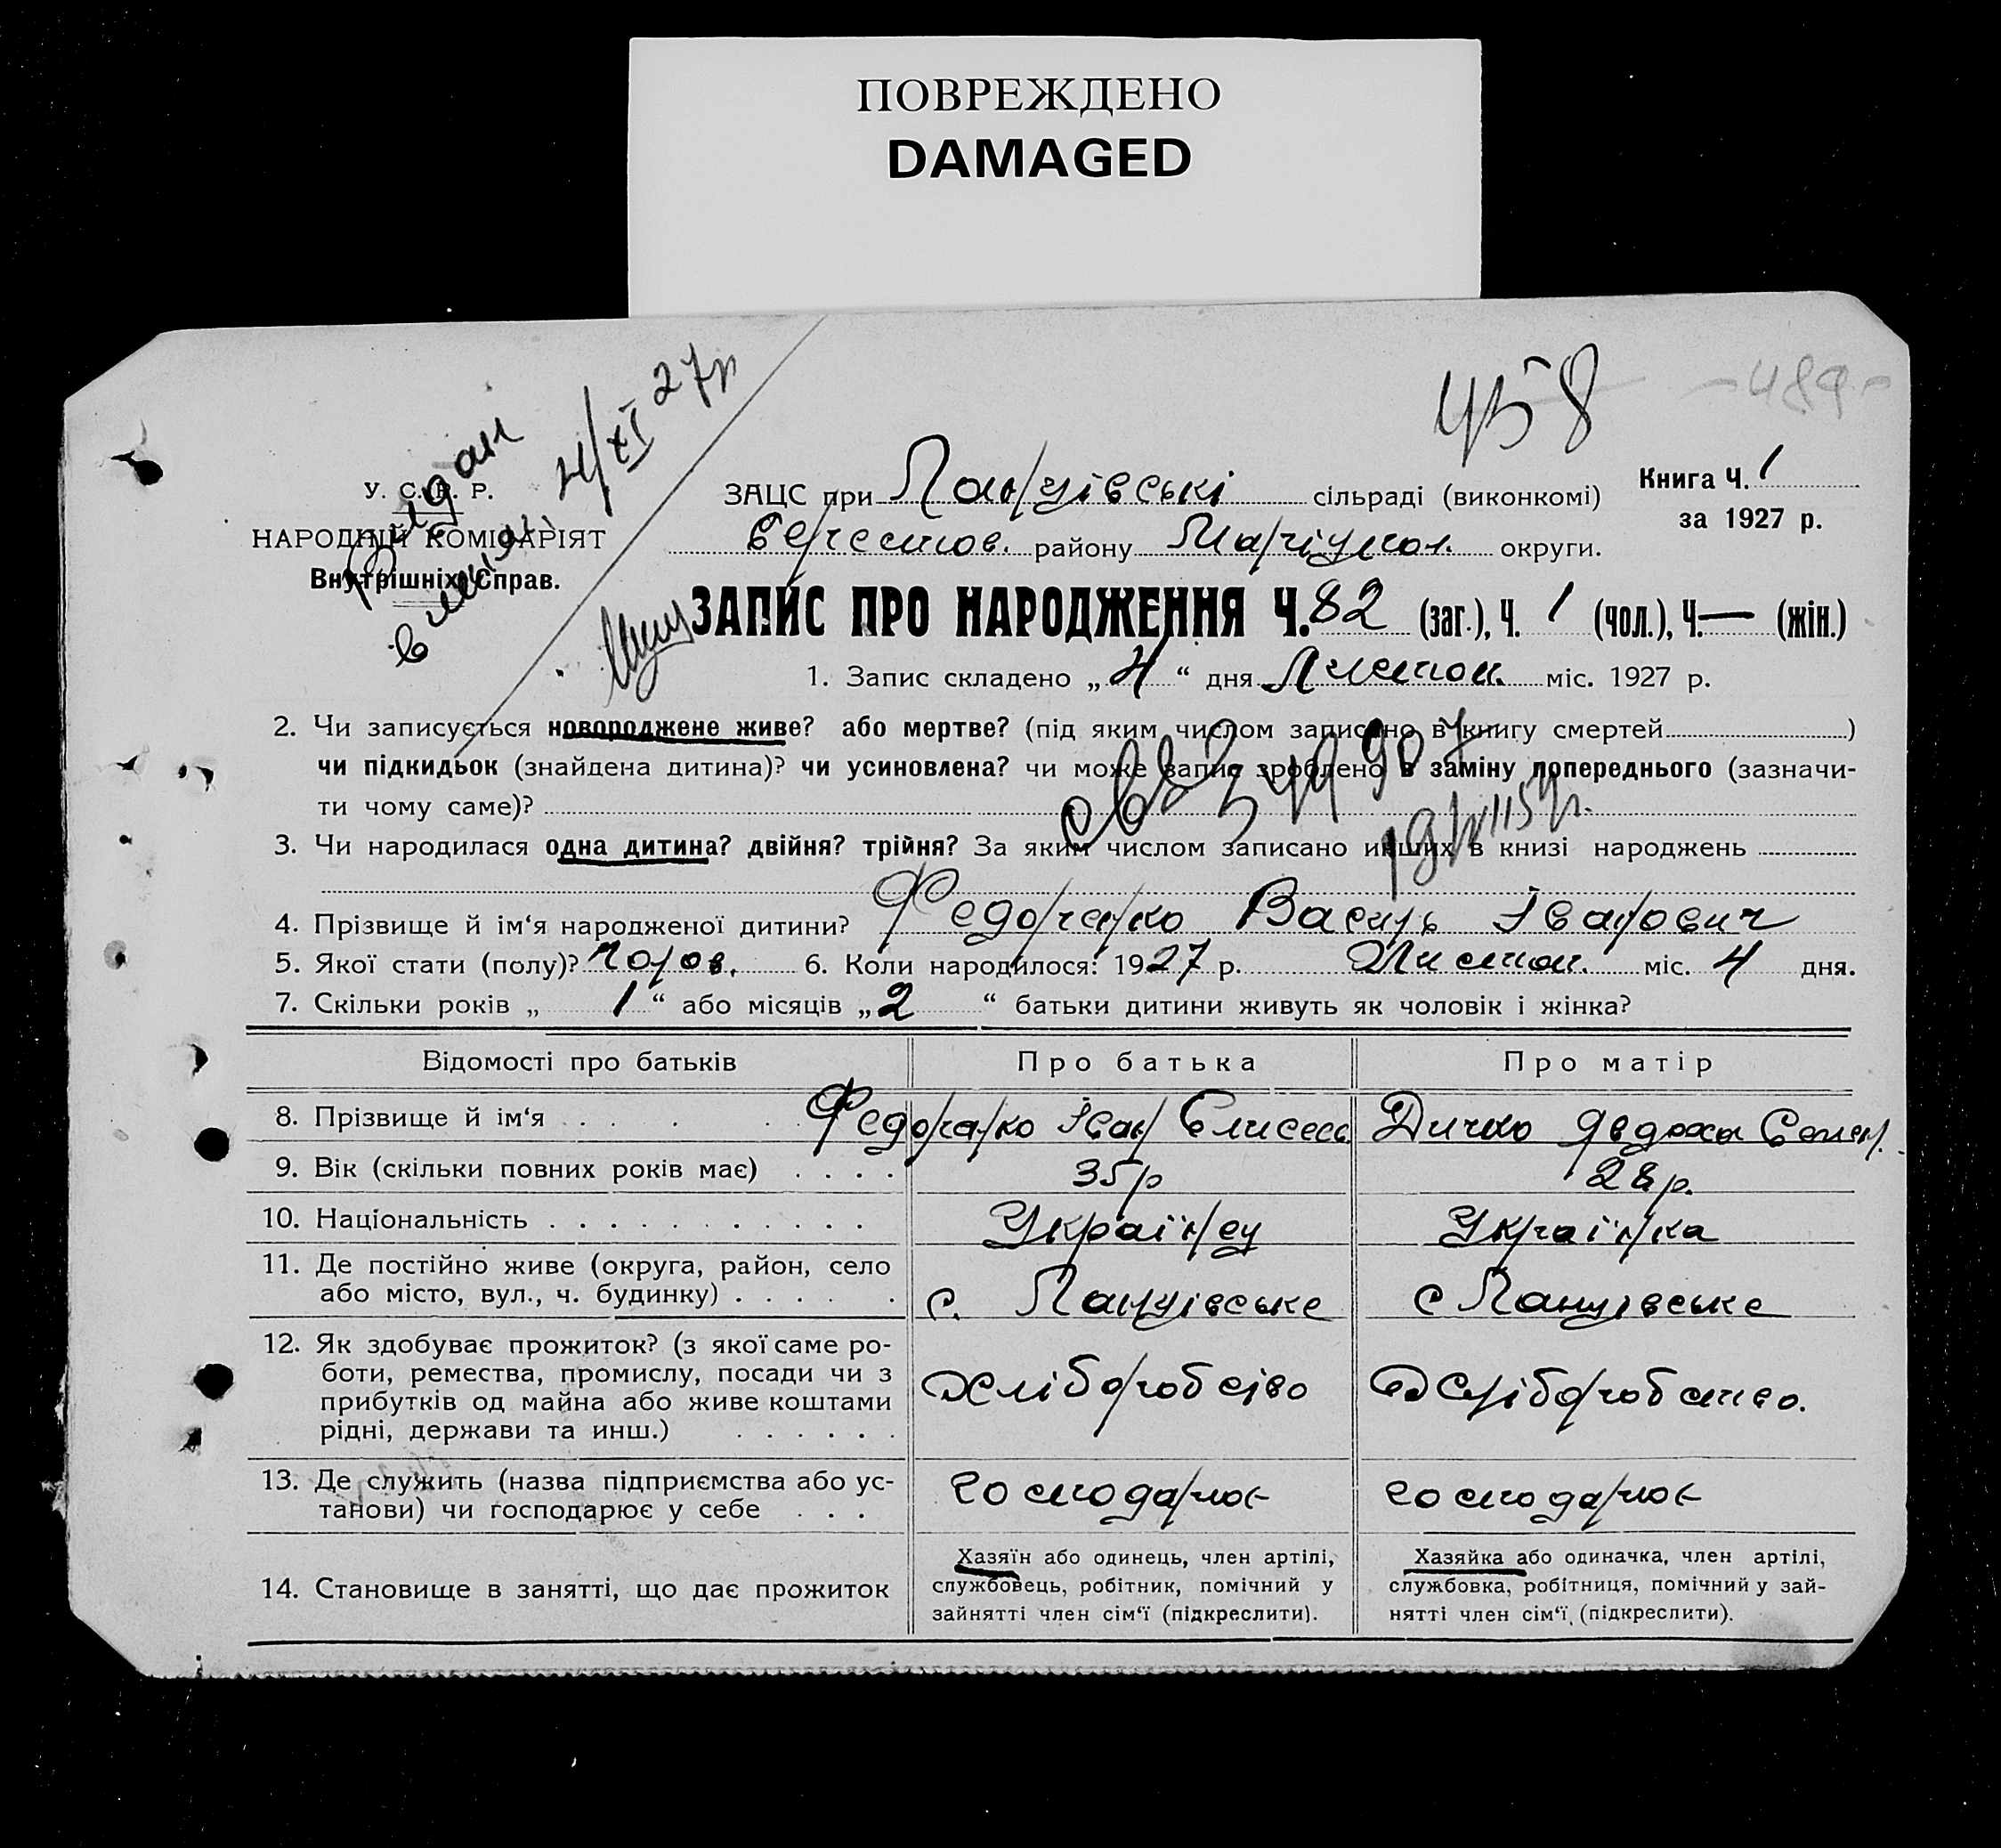 ПОВРЕЖДЕНО
DAMAGED
458
-489-
Видан
випис 4/XI 27р
У. С. Р. Р.
НАРОДНІЙ КОМІСАРІЯТ
Внутрішніх Справ.
ЗАЦС при Ланцівські сільраді (виконкомі)
Берестов. району Маріупол. округи.
Книга Ч. 1
за 1927 р.
ЗАПИС ПРО НАРОДЖЕННЯ Ч. 82 (заг.), Ч. 1 (чол.), Ч. — (жін.)
1. Запис складено „ 4 “ дня Листоп. міс. 1927 р.
2. Чи записується новороджене живе? або мертве? (під яким числом записано в книгу смертей )
чи підкидьок (знайдена дитина)? чи усиновлена? чи може запис зроблено в заміну попереднього (зазначи-
ти чому саме)?
3. Чи народилася одна дитина? двійня? трійня? За яким числом записано инших в книзі народжень
4. Прізвище й ім‘я народженої дитини? Федорчнко Василь Іванович
5. Якої стати (полу)? чолов. 6. Коли народилося: 1927 р. Листоп. міс. 4 дня.
7. Скільки років „ 1 “ або місяців „ 2 “ батьки дитини живуть як чоловік і жінка?
Відомості про батьків Про батька Про матір
8. Прізвище й ім‘я Федорчнко Іван Єлисеєв. Дичко Явдоха Семен.
9. Вік (скільки повних років має) 35р 28р.
10. Національність Українец Українка
11. Де постійно живе (округа, район, село
або місто, вул., ч. будинку) с. Ланцівське с Ланцівське
12. Як здобуває прожиток? (з якої саме ро-
боти, ремества, промислу, посади чи з
прибутків од майна або живе коштами
рідні, держави та инш.) Хліборобство Хліборобство.
13. Де служить (назва підприємства або ус-
танови) чи господарює у себе господарює господарює
14. Становище в занятті, що дає прожиток
Хазяїн або одинець, член артілі,
службовець, робітник, помічний у
зайнятті член сім‘ї (підкреслити).
Хазяйка або одиначка, член артілі,
службовка, робітниця, помічний у зай-
нятті член сім‘ї, (підкреслити).